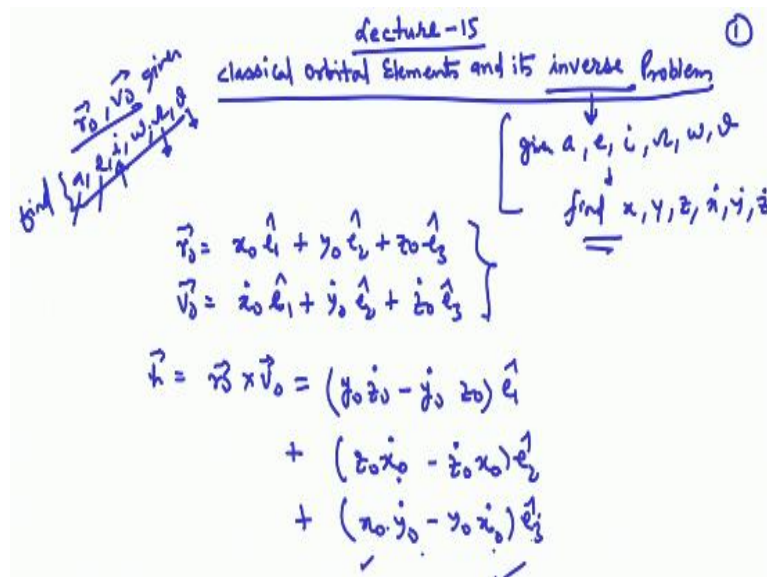 Lecture-15
①
Classical Orbital Elements and its inverse Problem
r⃗₀, v⃗₀ given
find {a, e, i, ω, Ω, θ
given a, e, i, Ω, ω, θ
find x, y, z, ẋ, ẏ, ż
r⃗₀ = x₀ ê₁ + y₀ ê₂ + z₀ ê₃
v⃗₀ = ẋ₀ ê₁ + ẏ₀ ê₂ + ż₀ ê₃
h⃗ = r⃗₀ × v⃗₀ = (y₀ ż₀ - ẏ₀ z₀) ê₁
+ (z₀ ẋ₀ - ż₀ x₀) ê₂
+ (x₀ ẏ₀ - y₀ ẋ₀) ê₃